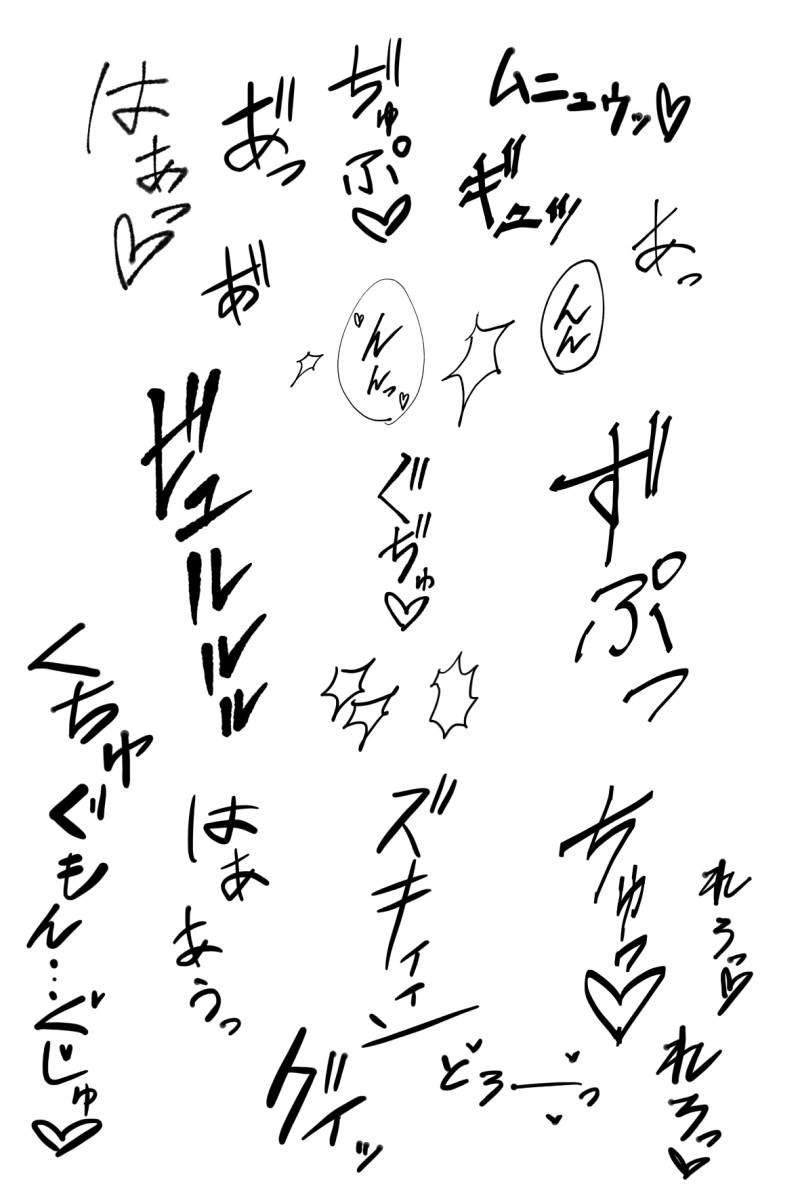 ムニュウッ♡
ギュッ
あ゛っ
ぢゅぷ♡
あ゛っ
はあっ♡
あ゛
んんっ
んん
ずぷっ
ぐぢゅ♡
ビュルルル
くちゅぐもん…ぐじゅ♡
はあ
あうっ
ズキィィン
ちゅっ♡
れろっ♡
れろっ♡
どろーっ
グイッ